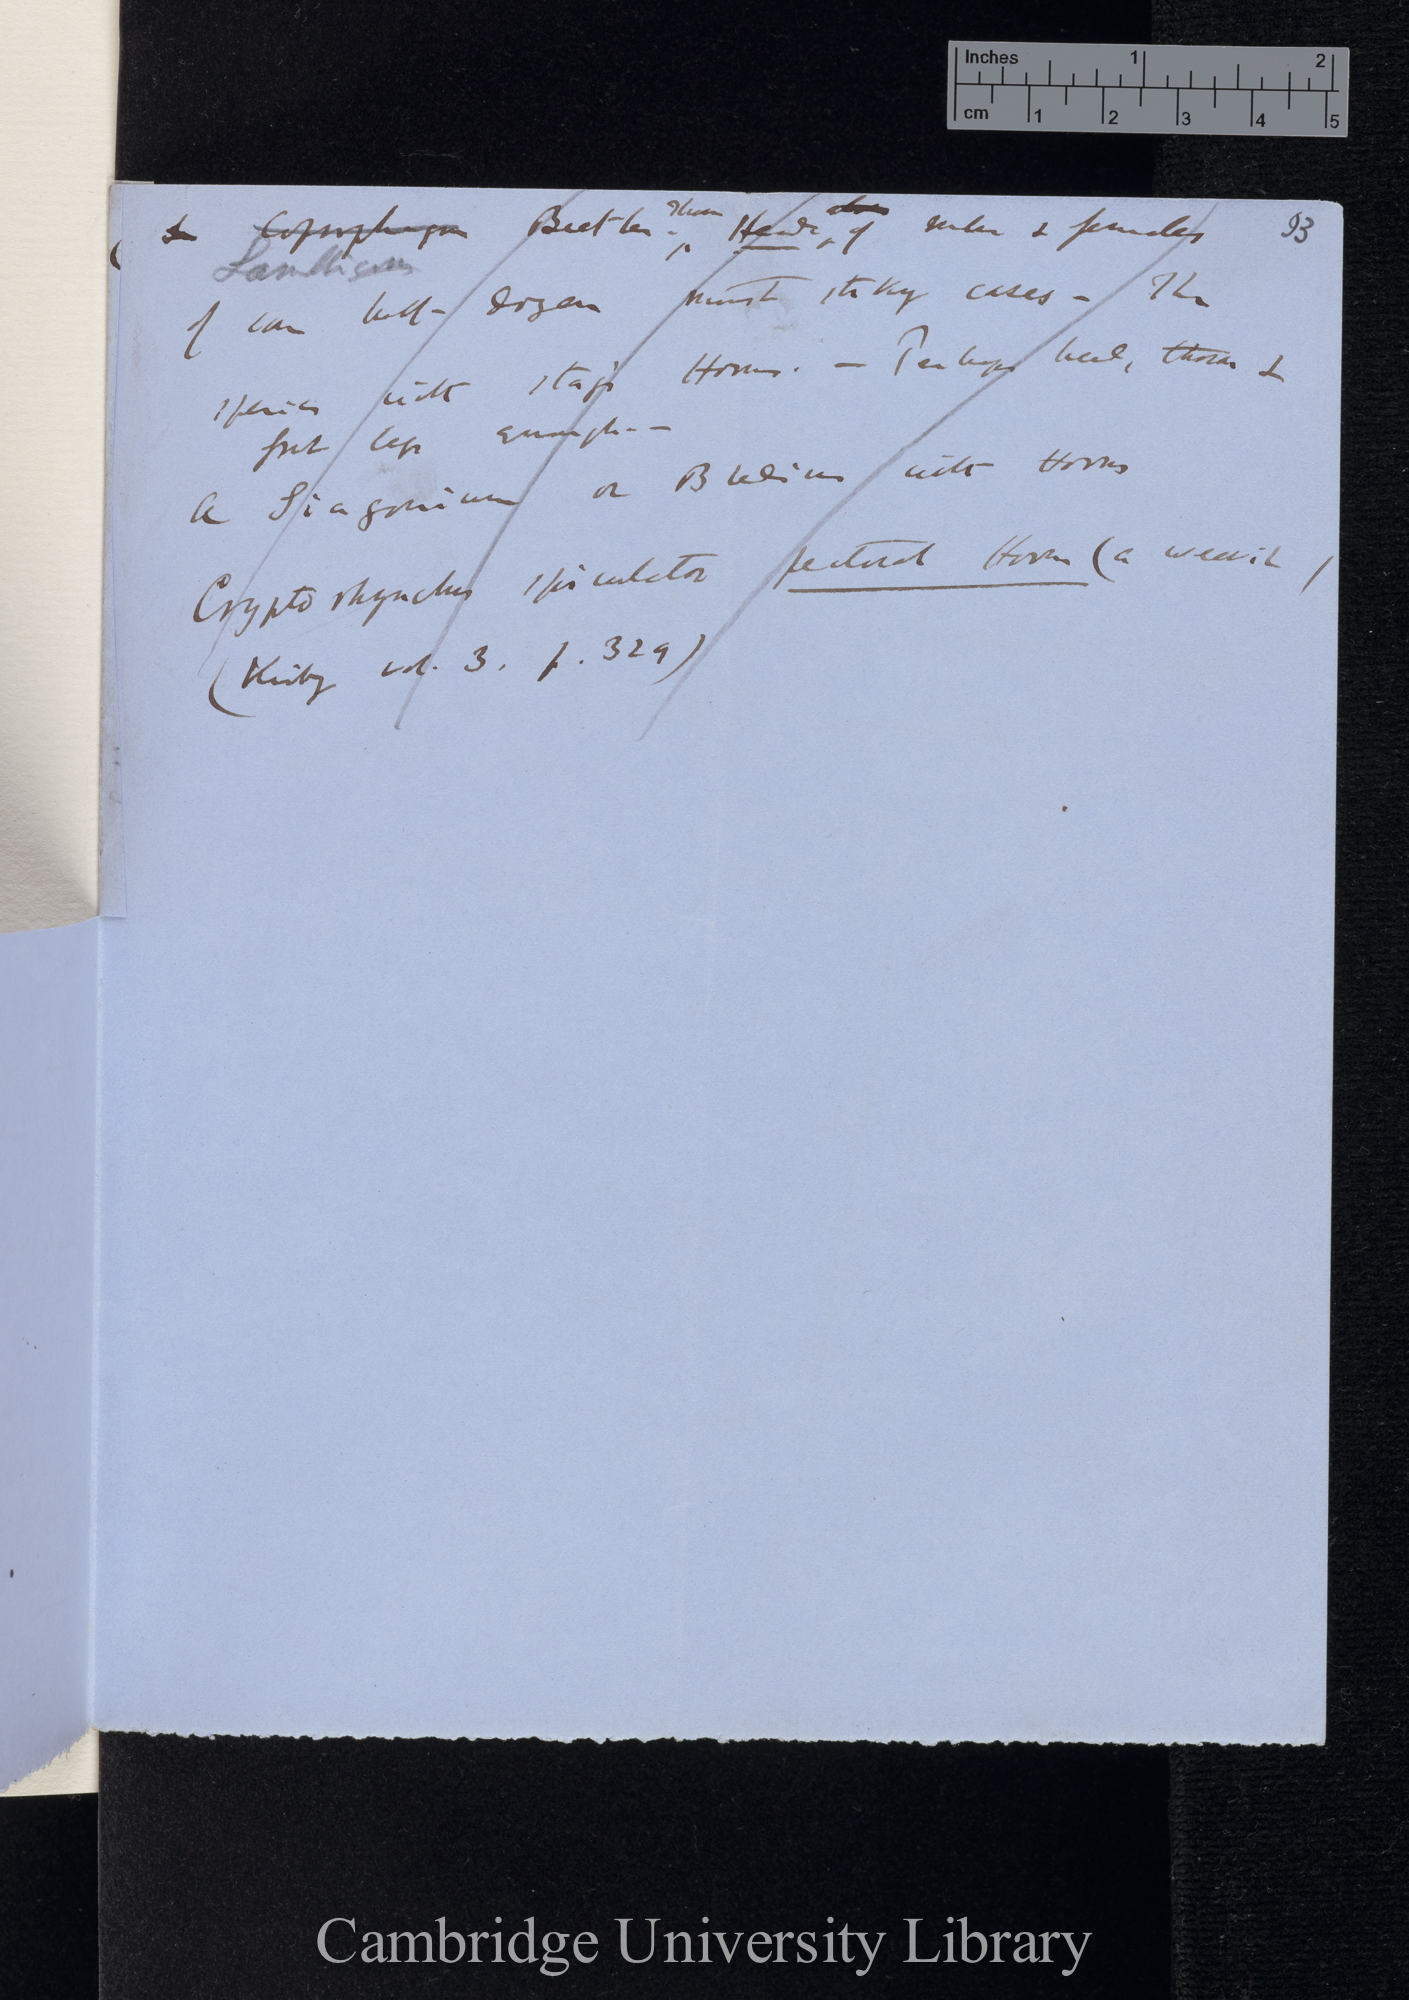 Inches 1 2
cm 1 2 3 4 5
93
Coprophagous Beetles. Thorax Heads of males & females
Lamellicorn
of some half-dozen most striking cases – The
species with stag's Horns. – Perhaps head, thorax &
front legs enough –
A Siagonium or Bledius with Horns
Cryptorhynchus spiculator pectoral Horns (a weevil)
(Kirby vol. 3. p. 329)
Cambridge University Library